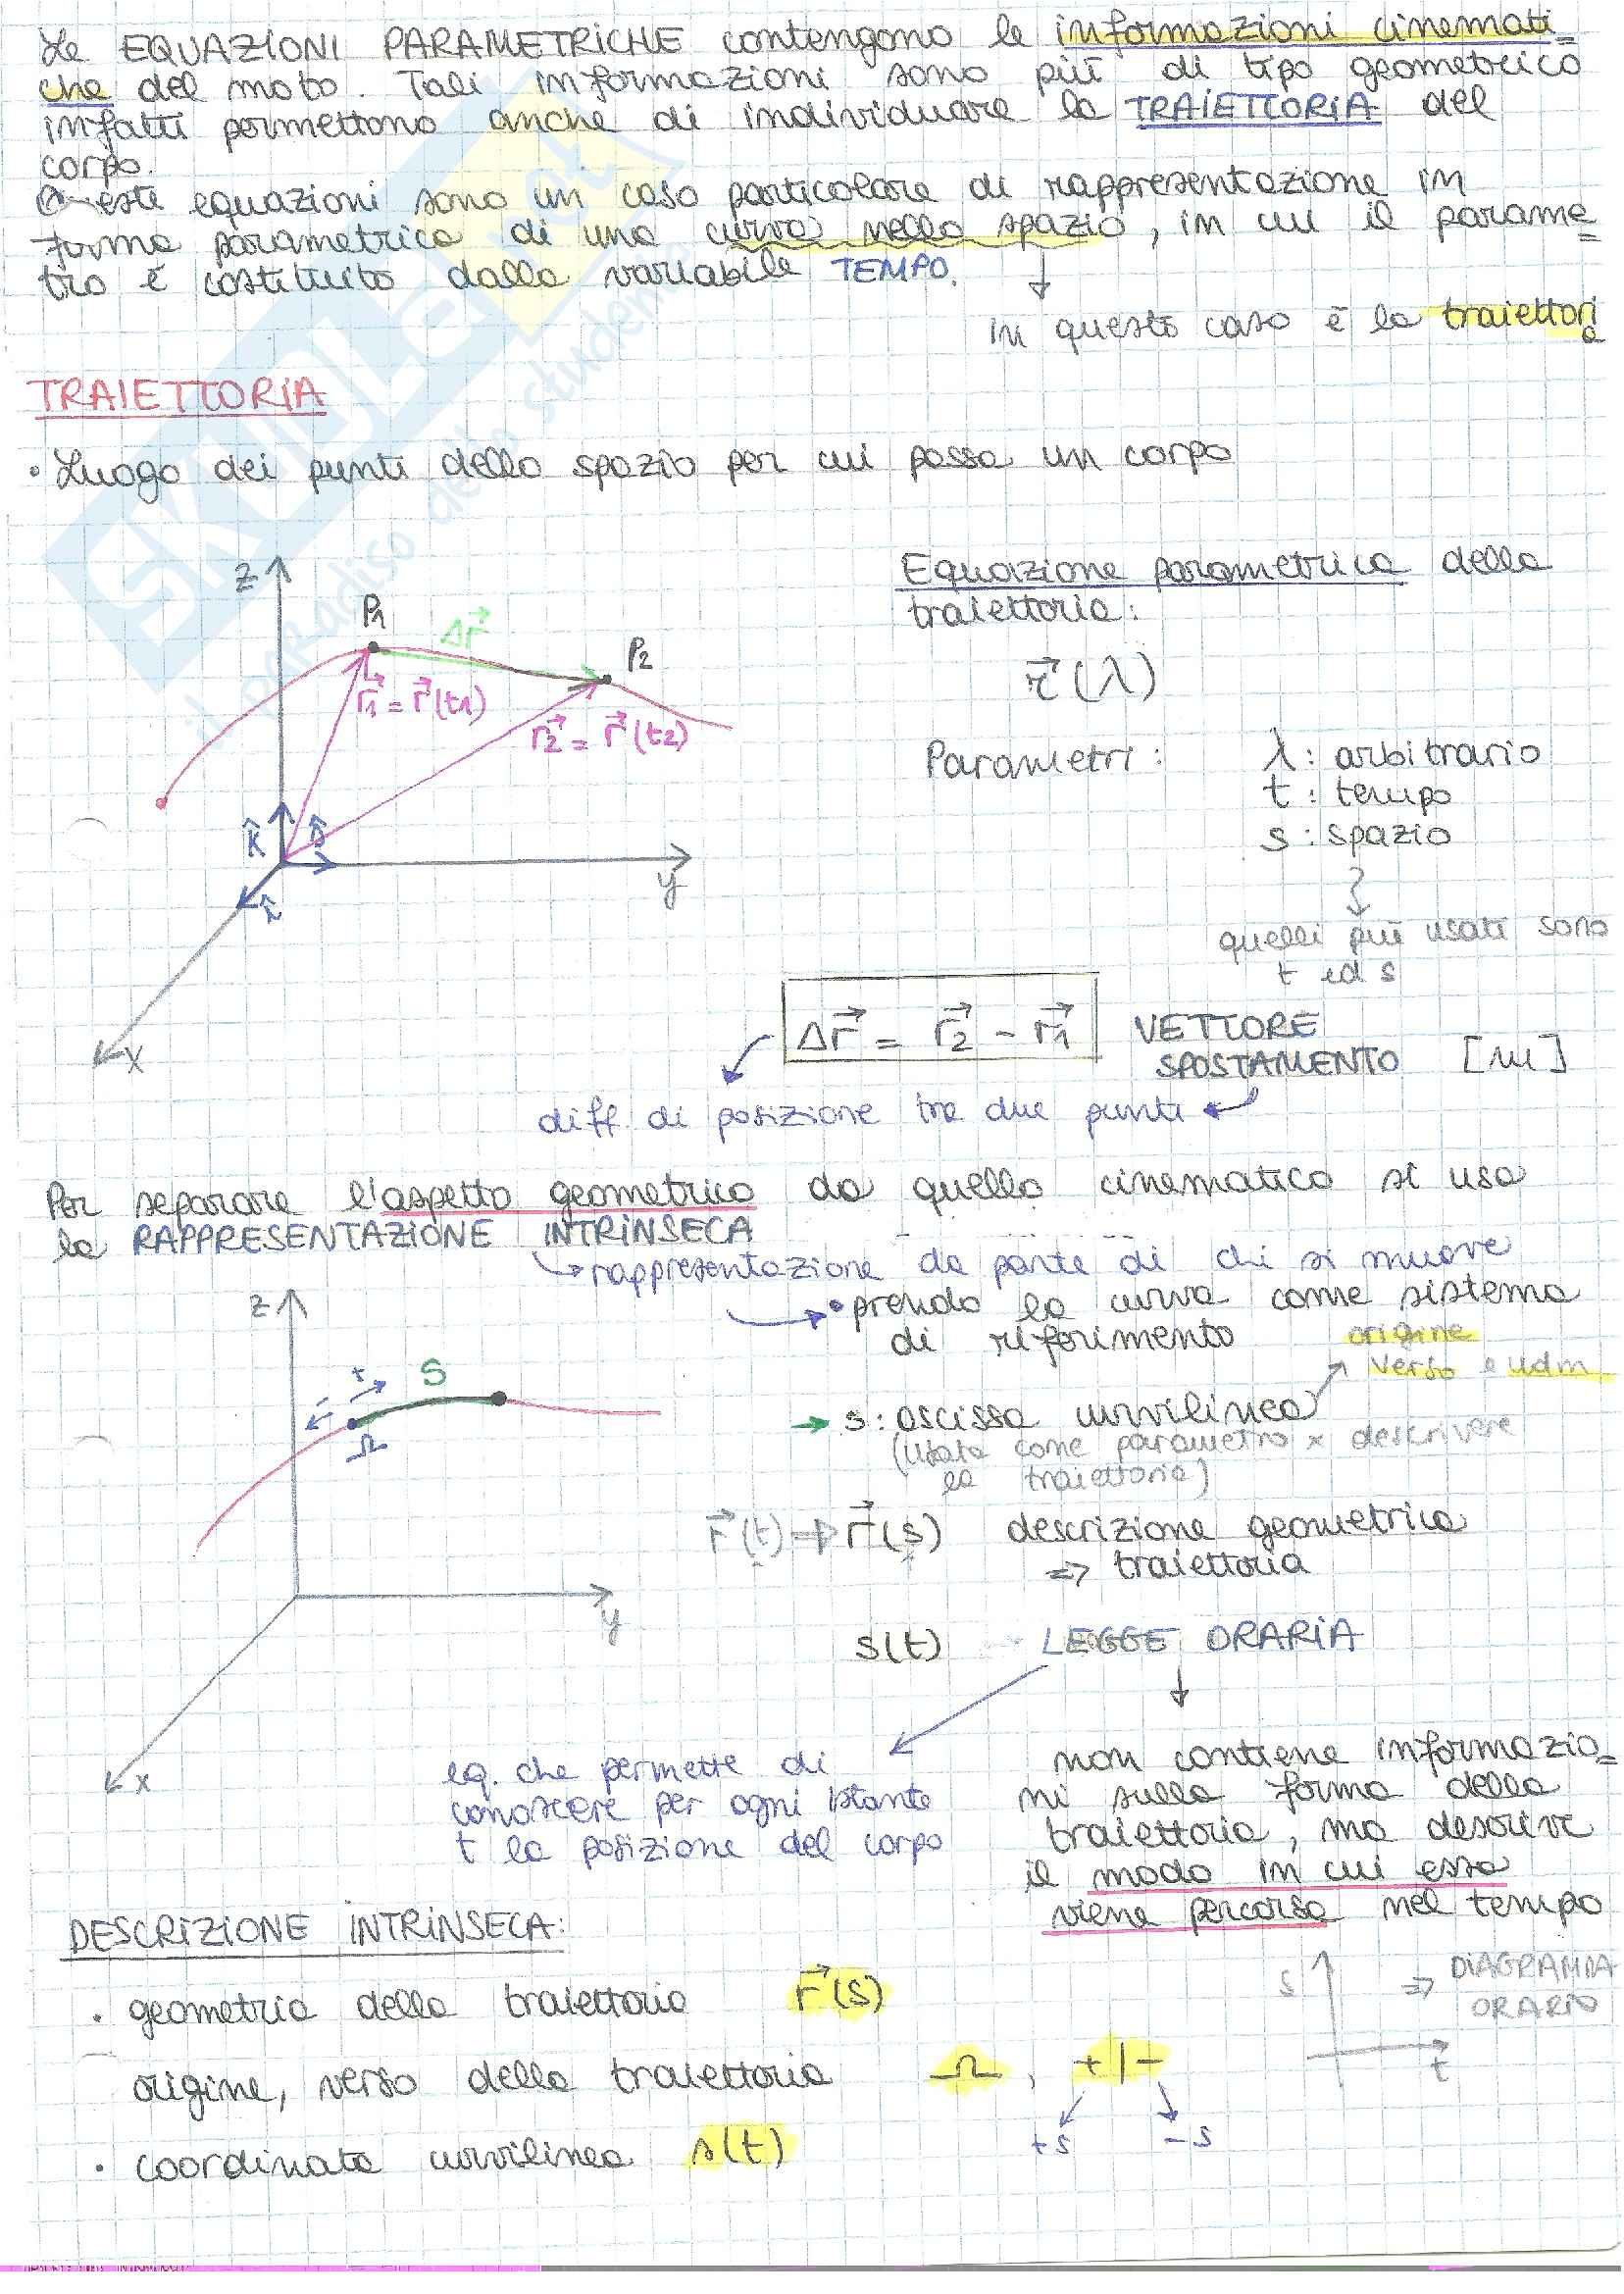 Le EQUAZIONI PARAMETRICHE contengono le informazioni cinemati=
che del moto. Tali informazioni sono più di tipo geometrico
infatti permettono anche di individuare la TRAIETTORIA del
corpo.
Queste equazioni sono un caso particolare di rappresentazione in
forma parametrica di una curva nello spazio, in cui il parame=
tro è costituito dalla variabile TEMPO.
in questo caso è la traiettoria
TRAIETTORIA
• Luogo dei punti dello spazio per cui passa un corpo
Equazione parametrica della
traiettoria:
z
P1
Δr⃗
P2
r⃗(λ)
r⃗1 = r⃗(t1)
r⃗2 = r⃗(t2)
Parametri: λ: arbitrario
t: tempo
s: spazio
k̂
ĵ
y
î
quelli più usati sono
t ed s
x
Δr⃗ = r⃗2 - r⃗1 VETTORE
SPOSTAMENTO [m]
diff. di posizione tra due punti
Per separare l'aspetto geometrico da quello cinematico si usa
la RAPPRESENTAZIONE INTRINSECA
rappresentazione da parte di chi si muove
• prendo la curva come sistema
di riferimento
origine
verso e udm
z
+
-
S
Ω
→ s: ascissa curvilinea
(usata come parametro x descrivere
la traiettoria)
r⃗(t) ⇒ r⃗(s) descrizione geometrica
⇒ traiettoria
y
s(t) LEGGE ORARIA
x
eq. che permette di
conoscere per ogni istante
t la posizione del corpo
non contiene informazio=
ni sulla forma della
traiettoria, ma descrive
il modo in cui essa
viene percorsa nel tempo
DESCRIZIONE INTRINSECA:
• geometria della traiettoria r⃗(s)
s
t
⇒ DIAGRAMMA
ORARIO
origine, verso della traiettoria Ω, +/-
+s -s
• coordinata curvilinea s(t)
SKUOLA.net
il paradiso dello studente